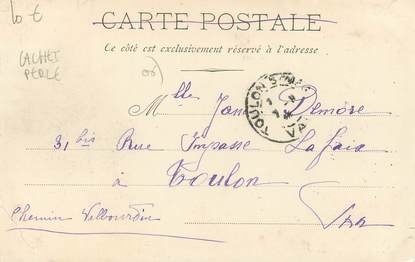 10 €
CARTE POSTALE
CACHET
PERLÉ
Ce côté est exclusivement réservé à l'adresse
TOULON
VAR
Mlle Demore
31 bis Rue Impasse Lafaix
à Toulon
Chemin Valbourdin Var